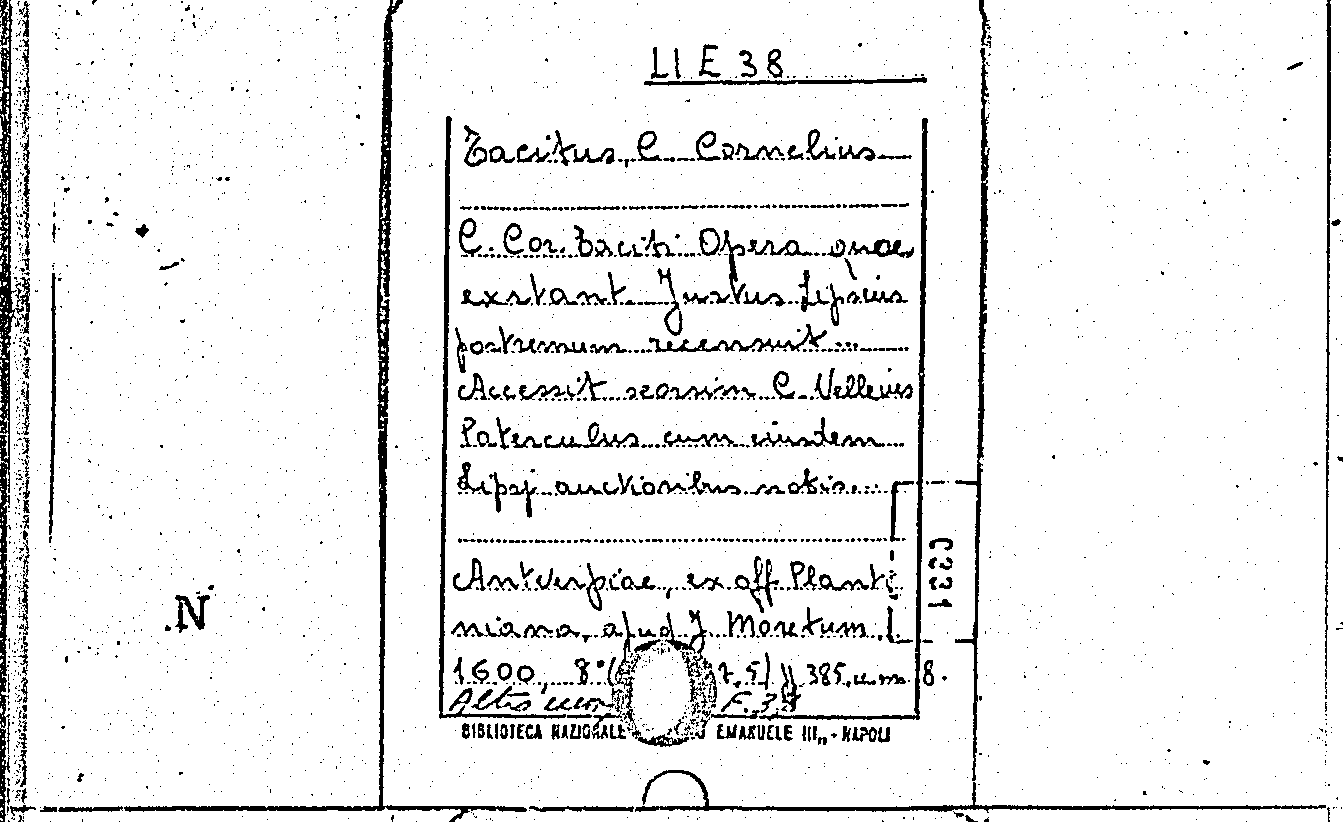 LI E 38
Tacitus, C. Cornelius
C. Cor. Taciti Opera quae
exstant. Justus Lipsius
postremum recensuit ...
Accessit seorsim C. Velleius
Paterculus cum eiusdem
Lipsj auctioribus notis...
Antverpiae, ex off. Planti
niana, apud J. Moretum,
1600, 8°
385
8.
Altro
F. 38
BIBLIOTECA NAZIONALE EMANUELE III,, - NAPOLI
C331
N